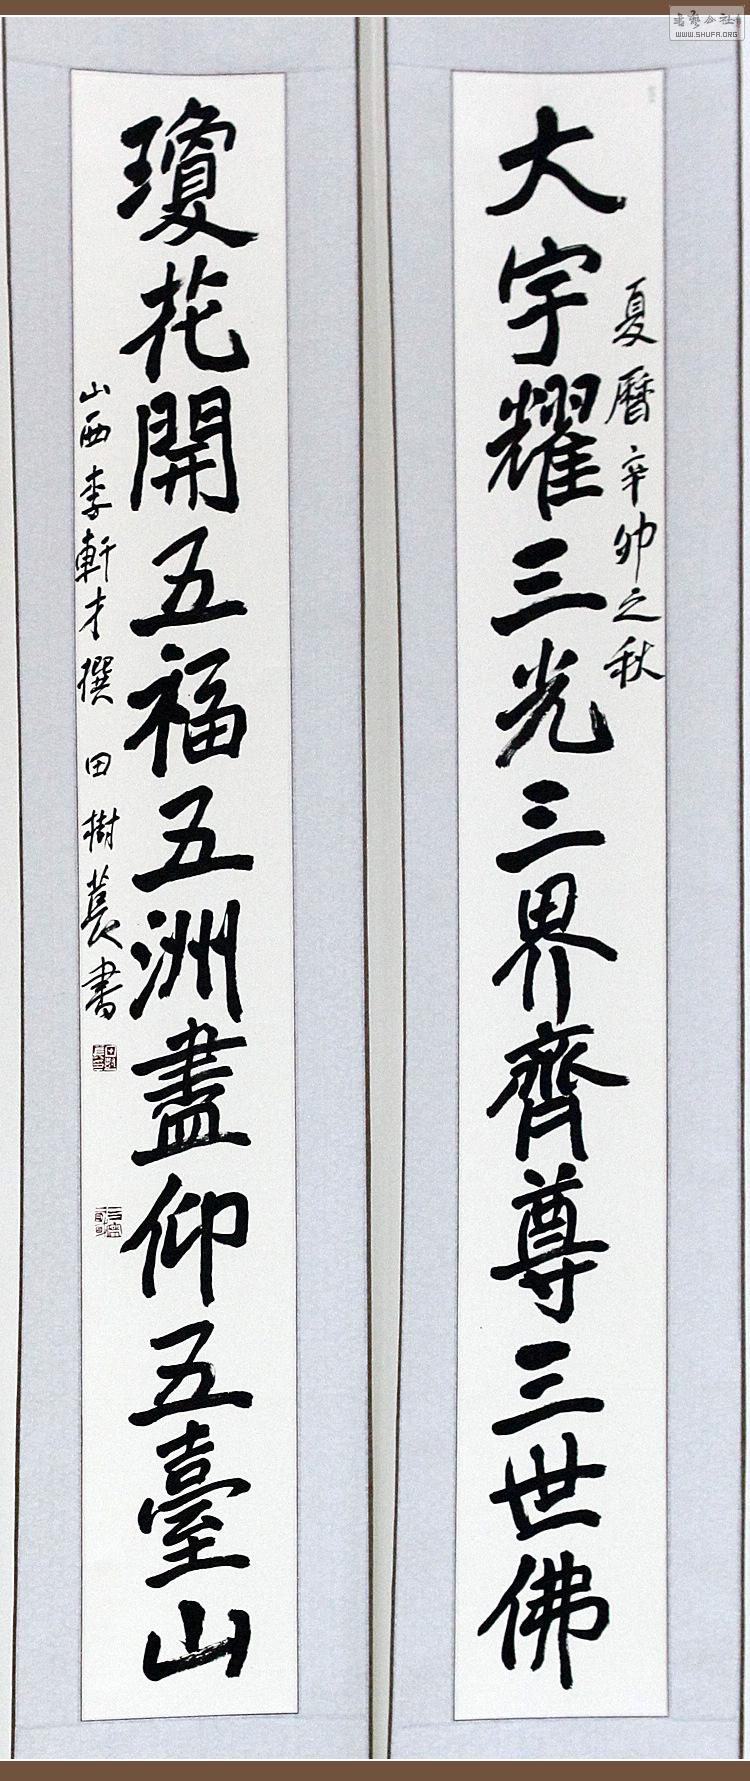 大宇耀三光三界齊尊三世佛
夏曆辛卯之秋
瓊花開五福五洲盡仰五臺山
山西李軒才撰 田樹萇書
WWW.SHUFA.ORG